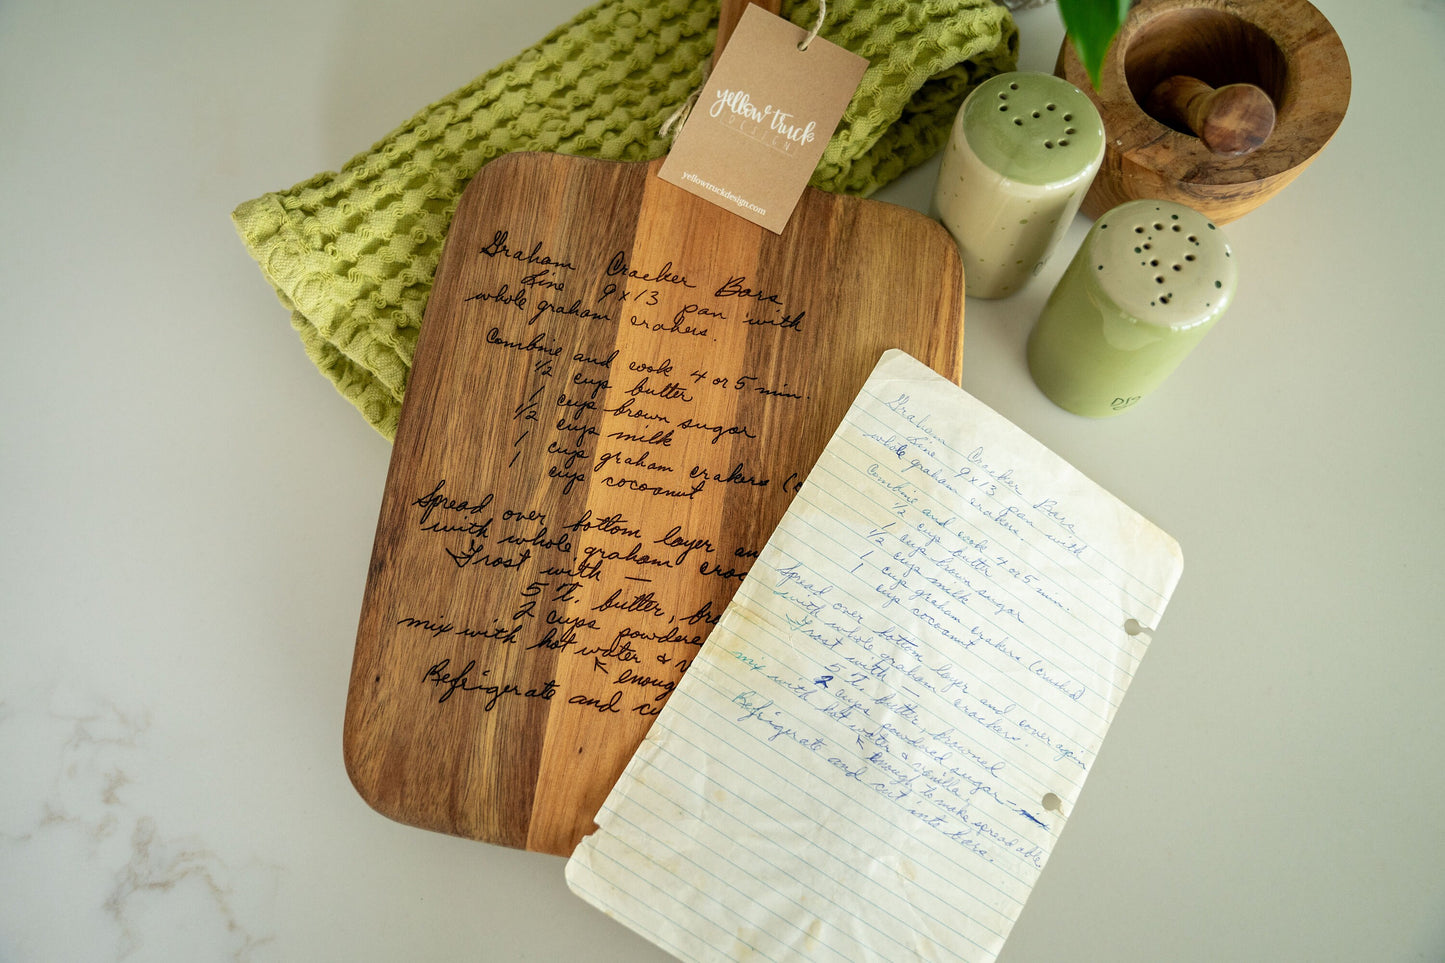 yellow truck
DESIGN
yellowtruckdesign.com
Graham Cracker Bars
Line 9x13 pan with
whole graham crakers.
Combine and cook 4 or 5 min.
1/2 cup butter
1 cup brown sugar
1/2 cup milk
1 cup graham crakers (
1 cup cocoanut
Spread over bottom layer an
with whole graham crac
Frost with —
5 T. butter, bro
2 cups powdere
mix with hot water & v
↖ enoug
Refrigerate and cu
Graham Cracker Bars
Line 9x13 pan with
whole graham crakers.
Combine and cook 4 or 5 min.
1/2 cup butter
1 cup brown sugar
1/2 cup milk
1 cup graham crakers (crushed)
1 cup cocoanut
Spread over bottom layer and cover again
with whole graham crackers.
Frost with —
5 T. butter, browned
2 cups powdered sugar - mix
mix with hot water & vanilla.
↖ enough to make spreadable
Refrigerate and cut into bars.